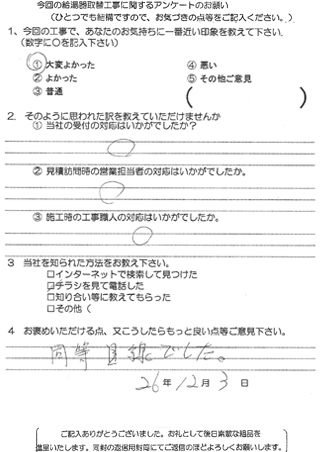 今回の給湯器取替工事に関するアンケートのお願い
(ひとつでも結構ですので、お気づきの点等をご記入ください。)
1、今回の工事で、あなたのお気持ちに一番近い印象を教えて下さい。
(数字に○を記入下さい)
① 大変よかった ④ 悪い
② よかった ⑤ その他ご意見
③ 普通 ( )
2. そのように思われた訳を教えていただけませんか
① 当社の受付の対応はいかがでしたか?
○
② 見積訪問時の営業担当者の対応はいかがでしたか。
○
③ 施工時の工事職人の対応はいかがでしたか。
○
3 当社を知られた方法をお教え下さい。
□インターネットで検索して見つけた
□チラシを見て電話した
□知り合い等に教えてもらった
□その他(
4 お褒めいただける点、又こうしたらもっと良い点等ご意見下さい。
同等目線でした。
26年12月3日
ご記入ありがとうございました。お礼として後日素敵な粗品を
進呈いたします。同封の返信用封筒にてご返信のほどよろしくお願いします。